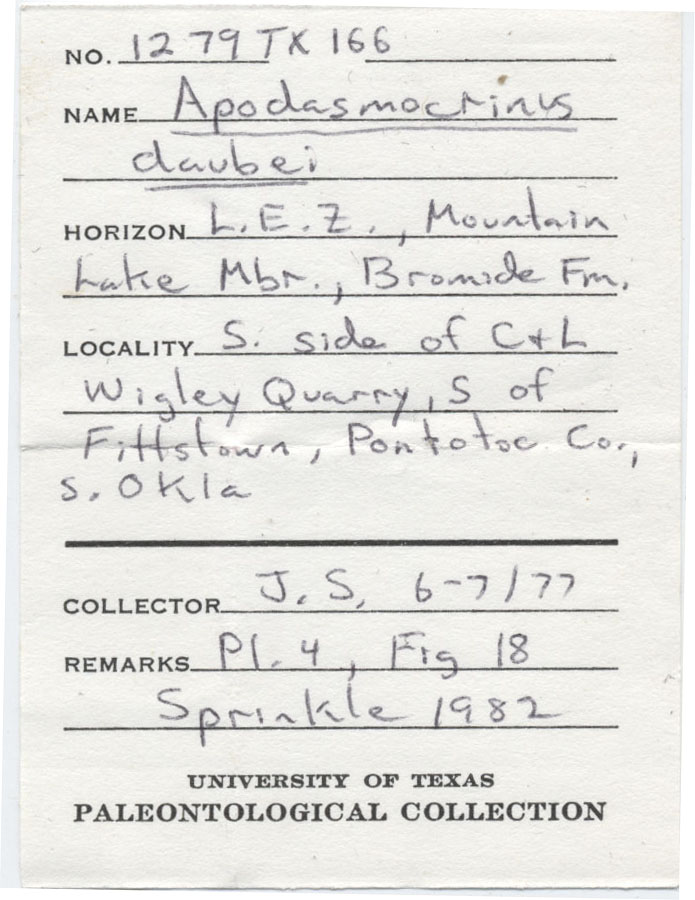 NO. 1279 TX 166
NAME Apodasmocrinus
daubei
HORIZON L.E.Z., Mountain
Lake Mbr., Bromide Fm.
LOCALITY S. side of C+L
Wigley Quarry, S of
Fittstown, Pontotoc Co.,
S. Okla
COLLECTOR J.S. 6-7/77
REMARKS Pl. 4, Fig 18
Sprinkle 1982
UNIVERSITY OF TEXAS
PALEONTOLOGICAL COLLECTION